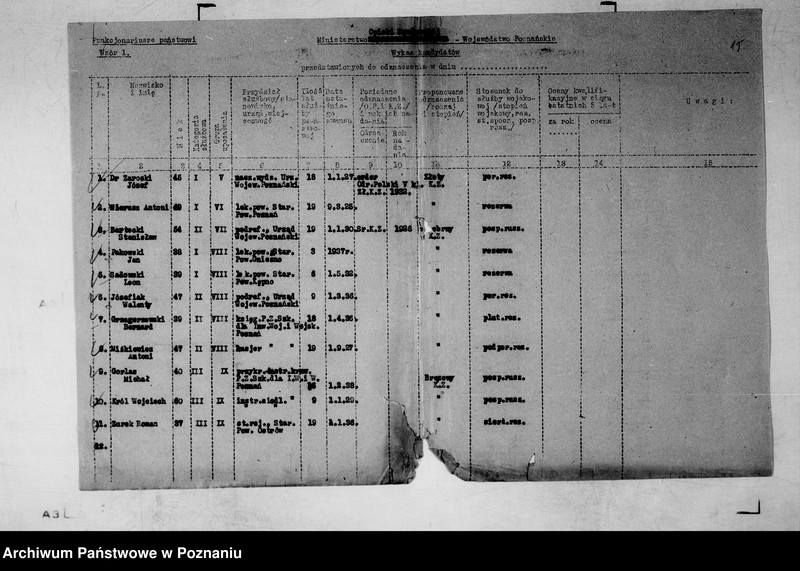 Funkcjonariusze państwowi
Wzór 1.
Opieki Społecznej
Ministerstwo - Województwo Poznańskie
Wykaz kandydatów
przedstawionych do odznaczenia w dniu
15
L. p. Nazwisko i imię Wiek Kategoria służbowa Grupa uposażenia Przydział służbowy/stanowisko, urząd, miejscowość Ilość lat służby państwowej Data ostatniego awansu Posiadane odznaczenia /O.P.i K.Z./ i rok ich nadania Odznaczenie. Rok nadania Proponowane odznaczenie /rodzaj i stopień/ Stosunek do służby wojskowej /stopień wojskowy, rez. st.spocz, posp. rusz./ Oceny kwalifikacyjne w ciągu ostatnich 2 lat za rok ocena Uwagi:
1 2 3 4 5 6 7 8 9 10 11 12 13 14 15
1. Dr Zaroski Józef 45 I V nacz.wydz. Urz. Wojew.Poznański 18 1.1.27. order Odr.Polski V kl. Zł.K.Z. 1932. Złoty K.Z. por.rez.
2. Wierusz Antoni 49 I VI lek.pow. Star. Pow.Poznań 19 9.3.25. " rezerwa
3. Bartecki Stanisław 54 II VII podref., Urząd Wojew.Poznański 19 1.1.30. Sr.K.Z. 1926 K.Z. posp.rusz.
4. Pakowski Jan 38 I VIII lek.pow. Star. Pow.Gniezno 3 1937r. " rezerwa
5. Sadowski Leon 39 I VIII lek.pow. Star. Pow.Kępno 6 1.5.32. " rezerwa
6. Józefiak Walenty 47 II VIII podref., Urząd Wojew.Poznański 9 1.3.36. " por.rez.
7. Grzegorzewski Bernard 39 II VIII księg.P.Z.Szk. dla Inw.Woj.i Wojsk. Poznań 18 1.4.36. " plut.rez.
8. Miśkiewicz Antoni 47 II VIII kasjer " " 19 1.9.27. " podpor.rez.
9. Gorlas Michał 40 III IX P.Z.Szk.dla I.W.i W. Poznań 16 1.2.38. Brązowy K.Z. posp.rusz.
10. Król Wojciech 60 III IX instr.siodl. " 9 1.1.29. " posp.rusz.
11. Żurek Roman 37 III IX st.rej., Star. Pow. Ostrów 19 1.1.36. " sierż.rez.
12.
A3
Archiwum Państwowe w Poznaniu